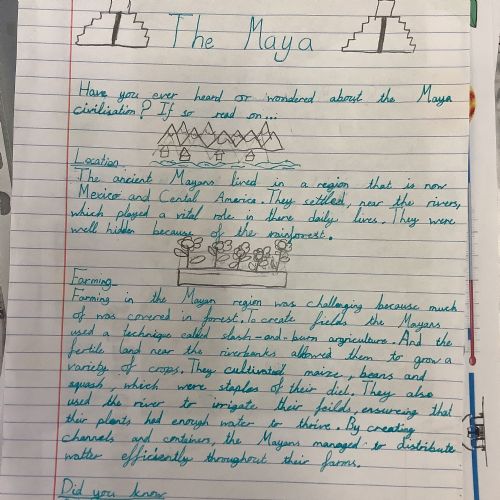 The Maya
Have you ever heard or wondered about the Maya
civilisation? If so read on...
Location
The ancient Mayans lived in a region that is now
Mexico and Cental America. They settled, near the rivers,
which played a vital role in there daily lives. They were
well hidden because of the rainforest.
Farming
Farming in the Mayan region was challenging because much
of was covered in forest. To create fields the Mayans
used a technique called slash-and-burn argriculture. And the
fertile land near the riverbanks allowed them to grow a
variety of crops. They cultivated maize, beans and
squash, which were staples of their diet. They also
used the river to irrigate their feilds, ensureing that
their plants had enough water to thrive. By creating
channels and containers, the Mayans managed to distribute
watter efficiently throughout their farms.
Did you know